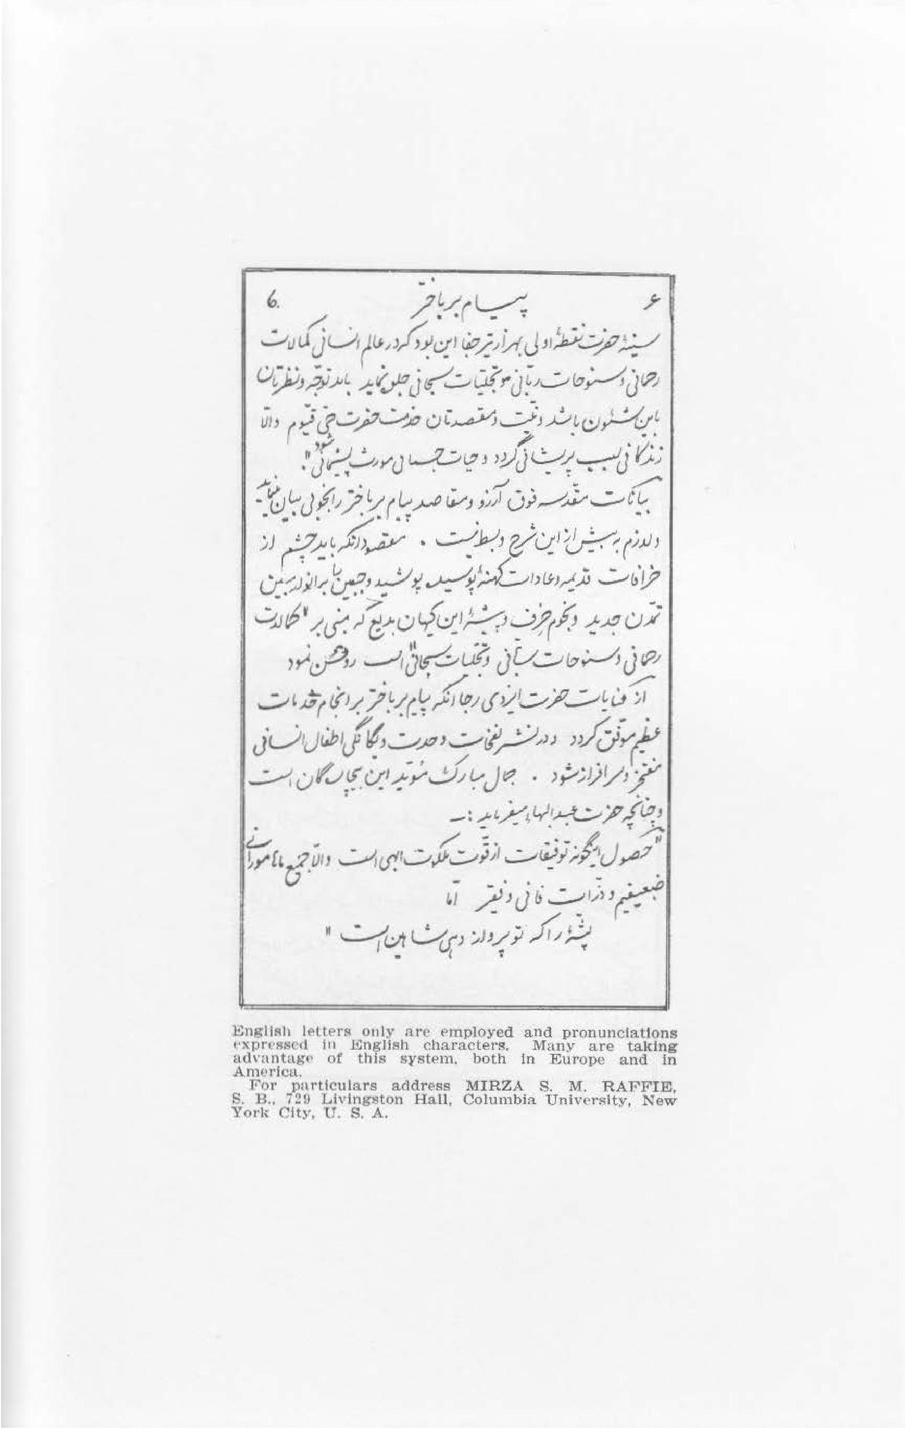 ۶ پیام بر باختر 6.
سینهٔ حضرت نقطهٔ اولی بهزار تیر جفا این بود که در عالم انسانی کمالات
رحمانی و سنوحات ربّانی و تجلیات سبحانی جلوه نماید باید توجّه و نظرتان
باین شئون باشد و نیّت و مقصدتان خدمت حضرت حیّ قیّوم والّا
زندگانی سبب پریشانی گردد و حیات جسمانی مورث پشیمانی شود".
بیانات مقدّسه فوق آرزو و مقاصد پیام بر باختر را بخوبی بیان مینماید
و لازم به بیش از این شرح و بسط نیست . مقصود آنکه باید چشم از
خرافات قدیمه و عادات کهنهٔ پوسیده پوشید و جبین را بر انوار مبین
تمدّن جدید و نجوم این کیهان بدیع که مبنی بر "کمالات
رحمانی و سنوحات ربّانی و تجلیات سبحانی" است روشن نمود
از عنایات حضرت ایزدی رجا آنکه پیام بر باختر بر انجام خدمات
عظیم موفّق گردد و در نشر نفحات وحدت و یگانگی اطفال انسانی
مفتخر و سرافراز شود . جمال مبارک مؤید این بیچارگان است
و چنانچه حضرت عبدالبهاء میفرماید :ـ
"حصول اینگونه توفیقات از قوّت ملکوت الهی است والّا جمیع ما ها مورانی
ضعیفیم و ذرّات فانی و فقیر امّا
پشّهٔ را که تو پرواز دهی شاهین است "
English letters only are employed and pronunciations
expressed in English characters. Many are taking
advantage of this system, both in Europe and in
America.
For particulars address MIRZA S. M. RAFFIE,
S. B., 729 Livingston Hall, Columbia University, New
York City, U. S. A.